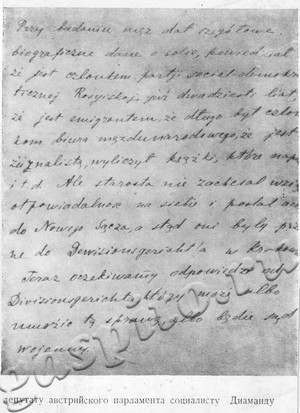 Przy badaniu mąż dał szegółowe
biograficzne dane o sobie, powiedział
że jest członkiem partji social-demokra
tycznej Rosyjskoj, już dwadzieścia liat,
że jest emigrantem, że długo był człon
kom biura międzunarodowego, że jest
żurnalistą, wyliczył książki, które napi
i t. d. Ale starosta nie zachciał wziąć
otpowiadalnosc na siebie i posłał
do Nowego Sącza, a stąd oni były prze
ne do Dewisionsgericht'a w Krakow
Teraz oczekiwamy odpowiedzi od
Divisionsgerichta, który może albo
umożić tą sprawę, albo będzie sąd
wojenny.
депутату австрийского парламента социалисту Диаманду